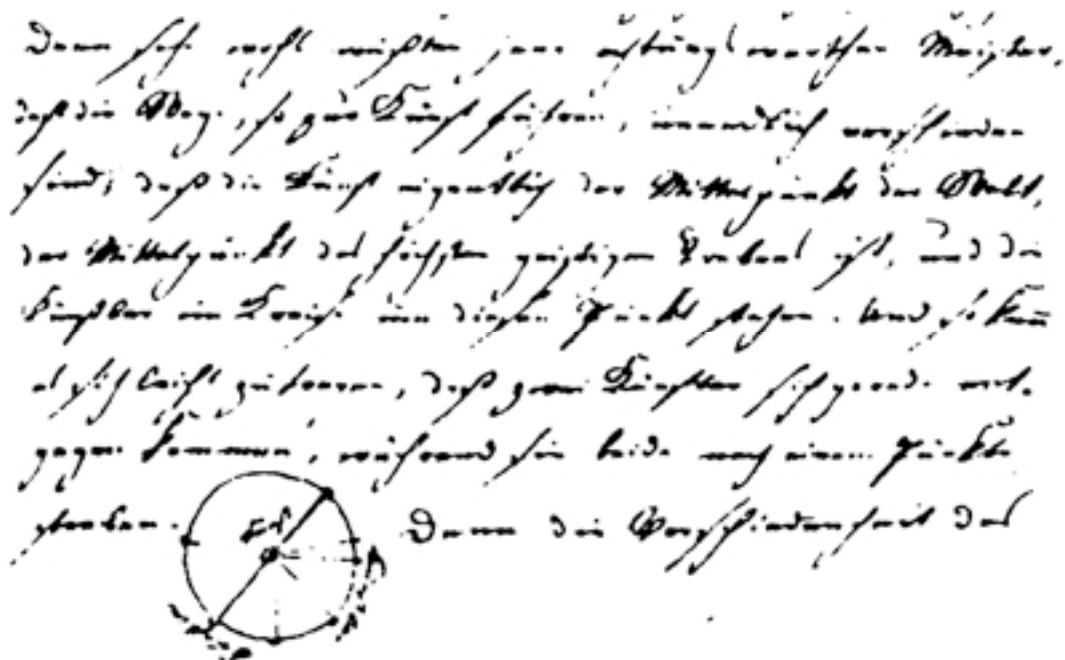 Denn sehr wohl wußten jene achtungswerthen Meister,
daß die Wege, so zur Kunst führen, unendlich verschieden
sind; daß die Kunst eigentlich der Mittelpunkt der Welt,
der Mittelpunkt des höchsten geistigen Strebens ist, und die
Künstler im Kreise um diesen Punkt stehen. Und so kann
es sich leicht zutragen, daß zwei Künstler sich gerade ent-
gegen kommen, während sie beide nach einem Punkte
streben. Denn die Verschiedenheit des